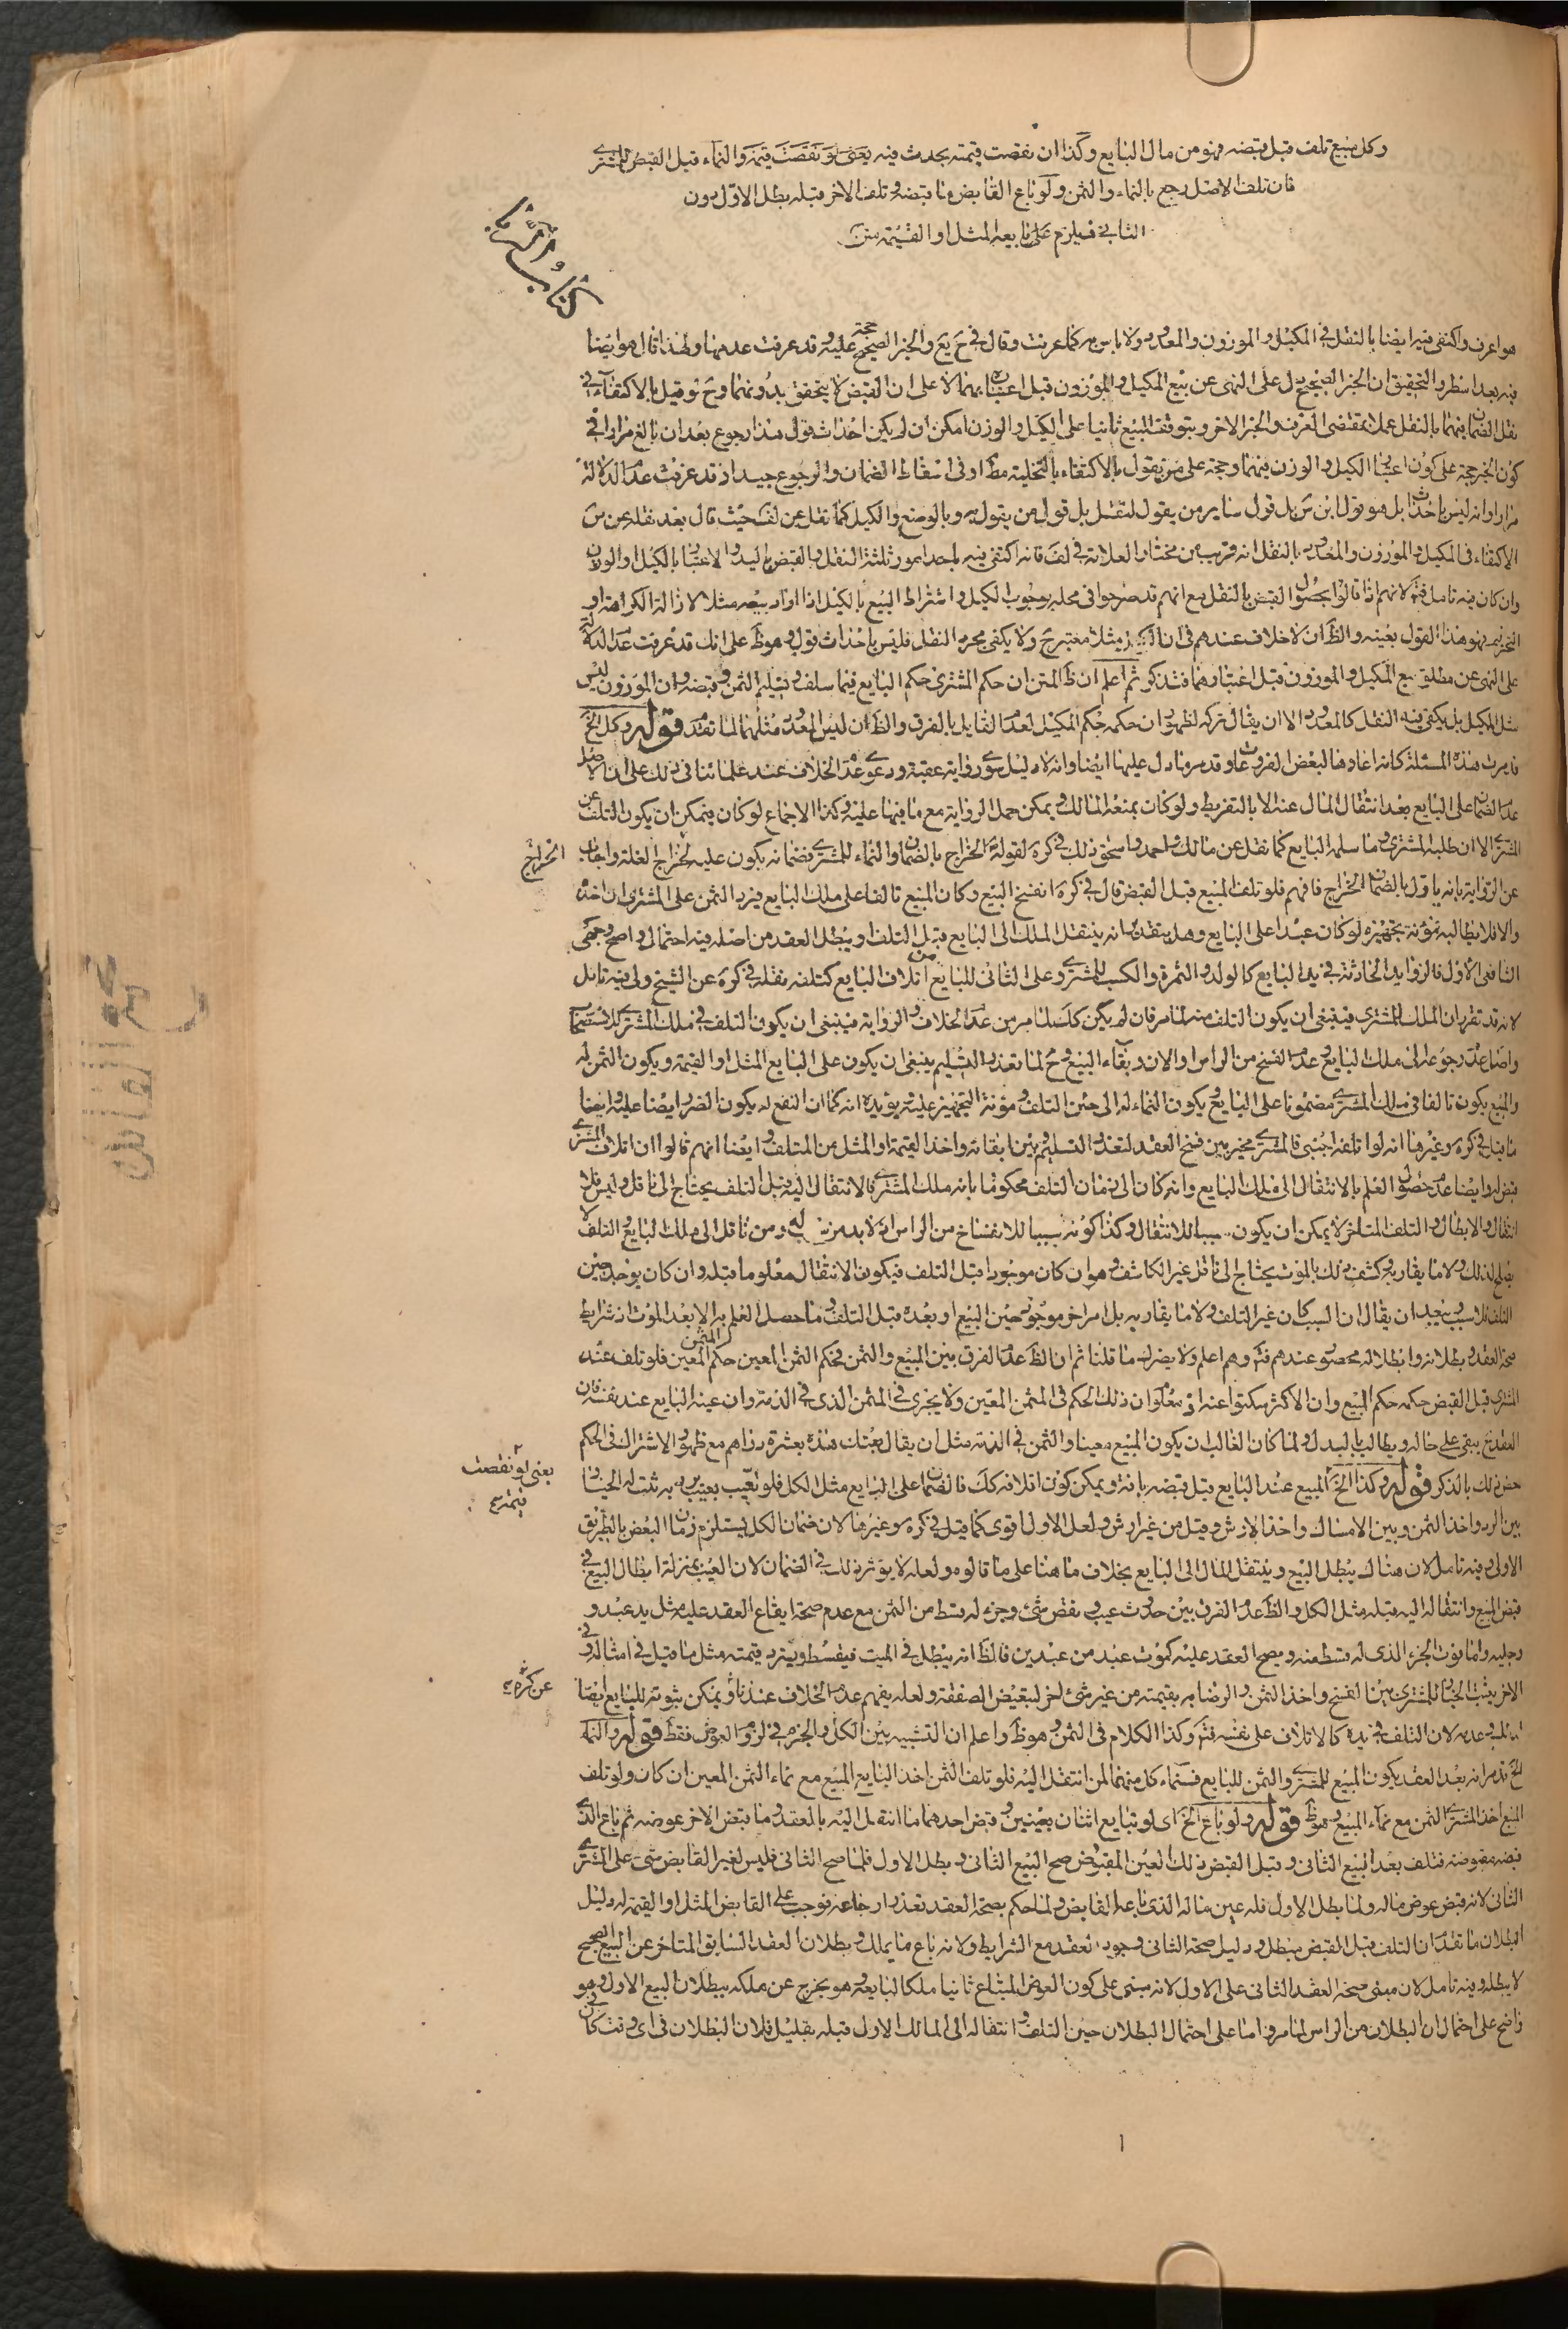 وكل مبيع تلف قبل قبضه فهو من مال البايع وكذا ان نقصت قيمته بحدث فيه يعني لو نقصت قيمته والنماء قبل القبض للمشتري
فان تلف الاصل رجع بالنماء والثمن ولو باع القابض ما قبضه وتلف الاخر قبله بطل الاول دون
الثاني فيلزم على بايعه المثل او القيمة
هو اعرف واكتفى فيه ايضا بالنقل في المكيل والموزون والمعدود ولا باس به كما عرفت وقال في والخبر الصحيح حجة عليه وقد عرفت عدمها ولهذا قال هو ايضا
فيه بعد نظر والتحقيق ان الخبر الصحيح دل على النهى عن بيع المكيل والموزون قبل اعتبارهما لا على ان القبض لا يتحقق بدونهما وح لو قيل بالاكتفاء في
نقل الضمان فيهما بالنقل عملا بمقتضى العرف والخبر الاخر ويتوقف البيع ثانيا على الكيل والوزن امكن ان لم يكن احداث قول هذا رجوع بعد ان بالغ مرارا في
كون الخبر حجة على كون اعتبار الكيل والوزن فيهما وحجة على من يقول بالاكتفاء بالتخلية مط او في اسقاط الضمان والرجوع جيد اذ قد عرفت عدم الدلالة
مرارا وانه ليس باحداث بل هو قول ابن بل قول ساير من يقول لنقل بل قول من يقول به وبالوضع والكيل كما نقل عن لف حيث قال بعد نقله عن
الاكتفاء في المكيل والموزون والمعدود بالنقل انه قريب من مختار العلامة في لف فانه اكتفى فيه باحد امور ثلثة النقل والقبض باليد والاعتبار بالكيل والوزن
وان كان فيه تامل فتم لانهم اذا قالوا بحصول القبض بالنقل مع انهم قد صرحوا في محله بوجوب الكيل واشتراط البيع بالكيل اذا اراد بيعه مثلا لازالة الكراهة او
التحريم فهو هذا القول بعينه والظ ان لا خلاف عندهم في ان مثلا معتبر ح ولا يكفى مجرد النقل فليس باحداث قول وهو ظ على انك قد عرفت عدم الدلالة
على النهى عن مطلق بيع المكيل والموزون قبل اعتبارهما فتذكر ثم اعلم ان ظ المتن ان حكم المشترى حكم البايع فيما سلف وتسليم الثمن وقبضه وان الموزون ليس
مثل المكيل بل يكفى فيه النقل كالمعدود الا ان يقال تركه لظهور ان حكمه حكم المكيل لعدم القايل بالفرق والظ ان ليس المعدود مثلهما لما تقدم قوله وكل الخ
قد مرت هذه المسئلة كانه اعادها لبعض الفروع وقد مر ما دل عليها ايضا وانه لا دليل سوى رواية عقبة ودعوى عدم الخلاف عند علمائنا في ذلك على ان الاصل
عدم الضمان على البايع بعد انتقال المال عنه الا بالتفريط ولو كان بمنعه المالك ويمكن حمل الرواية مع ما فيها عليه وكذا الاجماع لو كان فيمكن ان يكون التلف عن
المشترى الا ان طلبه المشترى وما سلمه البايع كما نقل عن مالك واحمد واسحق ذلك في كره لقوله الخراج بالضمان والنماء للمشترى فضمانه يكون عليه الخراج الغلة واجاب
الخراج
عن الرواية بانه يا قول بالضمان الخراج فافهم فلو تلف المبيع قبل القبض قال في كره انفسخ البيع وكان المبيع تالفا على ملك البايع فيرد الثمن على المشترى ان اخذه
والا فلا يطالبه ومؤنة تجهيزه لو كان عبدا على البايع وهل يتقدر انه ينتقل الملك الى البايع قبل التلف او يبطل العقد من اصله فيه احتمال واصح وجهى
الشافعى الاول فالزوايد الحادثة في يد البايع كالولد والثمرة والكسب للمشترى وعلى الثانى للبايع اتلاف البايع كتلفه نقله في كره عن الشيخ ولى فيه تامل
لانه قد تقرر ان الملك للمشترى فينبغى ان يكون التلف منه لما مر فان لم يكن كك لما مر من عدم الخلاف والرواية فينبغى ان يكون التلف في ملك المشترى للاستصحاب
واصل عدم رجوعه الى ملك البايع وعدم الفسخ من الراس او الان وبقاء البيع وح لما تعذر التسليم ينبغى ان يكون على البايع المثل او القيمة ويكون الثمن له
والمبيع يكون تالفا في ملك المشترى مضمونا على البايع ويكون النماء له الى حين التلف ومؤنة التجهيز عليه يؤيده انه كما ان النفع له يكون الضرر ايضا عليه وايضا
ما قيل في كره وغيرها انه لو اتلفه اجنبى فالمشترى مخير بين فسخ العقد لتعذر التسليم وبين ابقائه واخذ القيمة او المثل من المتلف وايضا انهم قالوا ان اتلاف المشترى
قبض له وايضا عدم حصول العلم بالانتقال الى ملك البايع وانه كان الى زمان التلف محكوما بانه ملك المشترى فالانتقال اليه قبل التلف يحتاج الى ناقل وليس فلا
انتقال والابطال والتلف المتاخر لا يمكن ان يكون سببا للانتقال وكذا كونه سببا للانفساخ من الراس اذ لا بد من سبب له ومن ناقل الى ملك البايع والتلف لا
يصلح لذلك ولا ما يقاربه وكشف ذلك بالموت يحتاج الى ناقل غير الكاشف وهو ان كان موجودا قبل التلف فيكون الانتقال معلوما قبله وان كان يوجد حين
التلف فلا سبب ويبعد ان يقال ان السبب كان غير التلف ولا ما يقاربه بل امر اخر موجود حين البيع او بعده قبل التلف وما حصل العلم به الا بعد الموت اذ شرايط
صحة العقد وبطلانه وابطاله محصور عندهم فتم وهم اعلم ولا يضر ما قلنا ثم ان الظ عدم الفرق بين المبيع والثمن فحكم الثمن المعين حكم المثمن المعين فلو تلف عند
المشترى قبل القبض حكمه حكم المبيع وان الاكثر سكتوا عنه وان ذلك الحكم في المثمن المعين ولا يجرى في المثمن الذى في الذمة وان عينه البايع عند نفسه فان
العقد ح يبقى على حاله ويطالب بالبدل ولما كان الغالب ان يكون المبيع معينا والثمن في الذمة مثل ان يقال بعتك هذه بعشرة دراهم مع ظهور الاشتراك في الحكم
خص ذلك بالذكر قوله وكذا الخ المبيع عند البايع قبل قبضه بانة ويمكن كون اتلافه كك فالضمان على البايع مثل الكل فلو تعيب بعيب به ثبت له الخيار
يعنى لو نقصت
قيمته
بين الرد واخذ الثمن وبين الامساك واخذ الارش وقيل من غير ارش ولعل الاول اقوى كما قيل في كره وغيرها لان ضمان الكل يستلزم ضمان البعض بالطريق
الاولى وفيه تامل لان هناك يبطل البيع وينتقل المال الى البايع بخلاف ما هنا على ما قالوه ولعله لا يؤثر ذلك في الضمان لان العيب بمنزلة ابطال البيع في
قبض المبيع وانتقاله اليه قبله مثل الكل والظ عدم الفرق بين حدوث عيب ونقص شئ وجزء له قسط من الثمن مع عدم صحة ايقاع العقد عليه مثل يد عبد و
رجليه واما فوت الجزء الذى له قسط منه ويصح العقد عليه كموت عبد من عبدين فالظ انه يبطل في الميت فيقسط ويسترد قيمته مثل ما قيل في امثاله وفي
الاخر يثبت الخيار للمشترى بين الفسخ واخذ الثمن والرضا به بقيمته من غير شئ اخر لتبعيض الصفقة ولعله يفهم عدم الخلاف عندنا ويمكن ثبوته للبايع ايضا
عن كره
وعدمه لان التلف في يده كالاتلاف على نفسه فتم وكذا الكلام في الثمن وهو ظ واعلم ان التشبيه بين الكل والجزء في لزوم العوض فقط قوله والنماء
الخ قد مر انه بعد العقد يكون المبيع للمشترى والثمن للبايع فنماء كل منهما لمن انتقل اليه فلو تلف الثمن اخذ البايع المبيع مع نماء الثمن المعين ان كان ولو تلف
المبيع اخذ المشترى الثمن مع نماء المبيع وهو ظ قوله ولو باع الخ اى لو تبايع اثنان بعينين وقبض احدهما ما انتقل اليه بالعقد وما قبض الاخر عوضه ثم باع الذى
قبضه مقبوضه فتلف بعد البيع الثانى وقبل القبض ذلك العين الغير المقبوض صح البيع الثانى وبطل الاول فلما صح الثانى فليس لغير القابض شئ على المشترى
الثانى لانه قبض عوض ماله ولما بطل الاول فله عين ماله الذى باعه القابض ولما حكم بصحة العقد تعذر ارجاعه فوجب على القابض المثل او القيمة له ودليل
البطلان ما تقدم ان التلف قبل القبض مبطل ودليل صحة الثانى وجود العقد مع الشرايط ولانه باع ما يملك وبطلان العقد السابق المتاخر عن البيع الصحيح
لا يبطله وفيه تامل لان مبنى صحة العقد الثانى على الاول لانه مبنى على كون العوض المبتاع ثانيا ملكا لبايعه وهو يخرج عن ملكه ببطلان البيع الاول وهو
واضح على احتمال ان البطلان من الراس لما مر واما على احتمال البطلان حين التلف وانتقاله الى المالك الاول قبله بقليل فلان البطلان في اى وقت كان